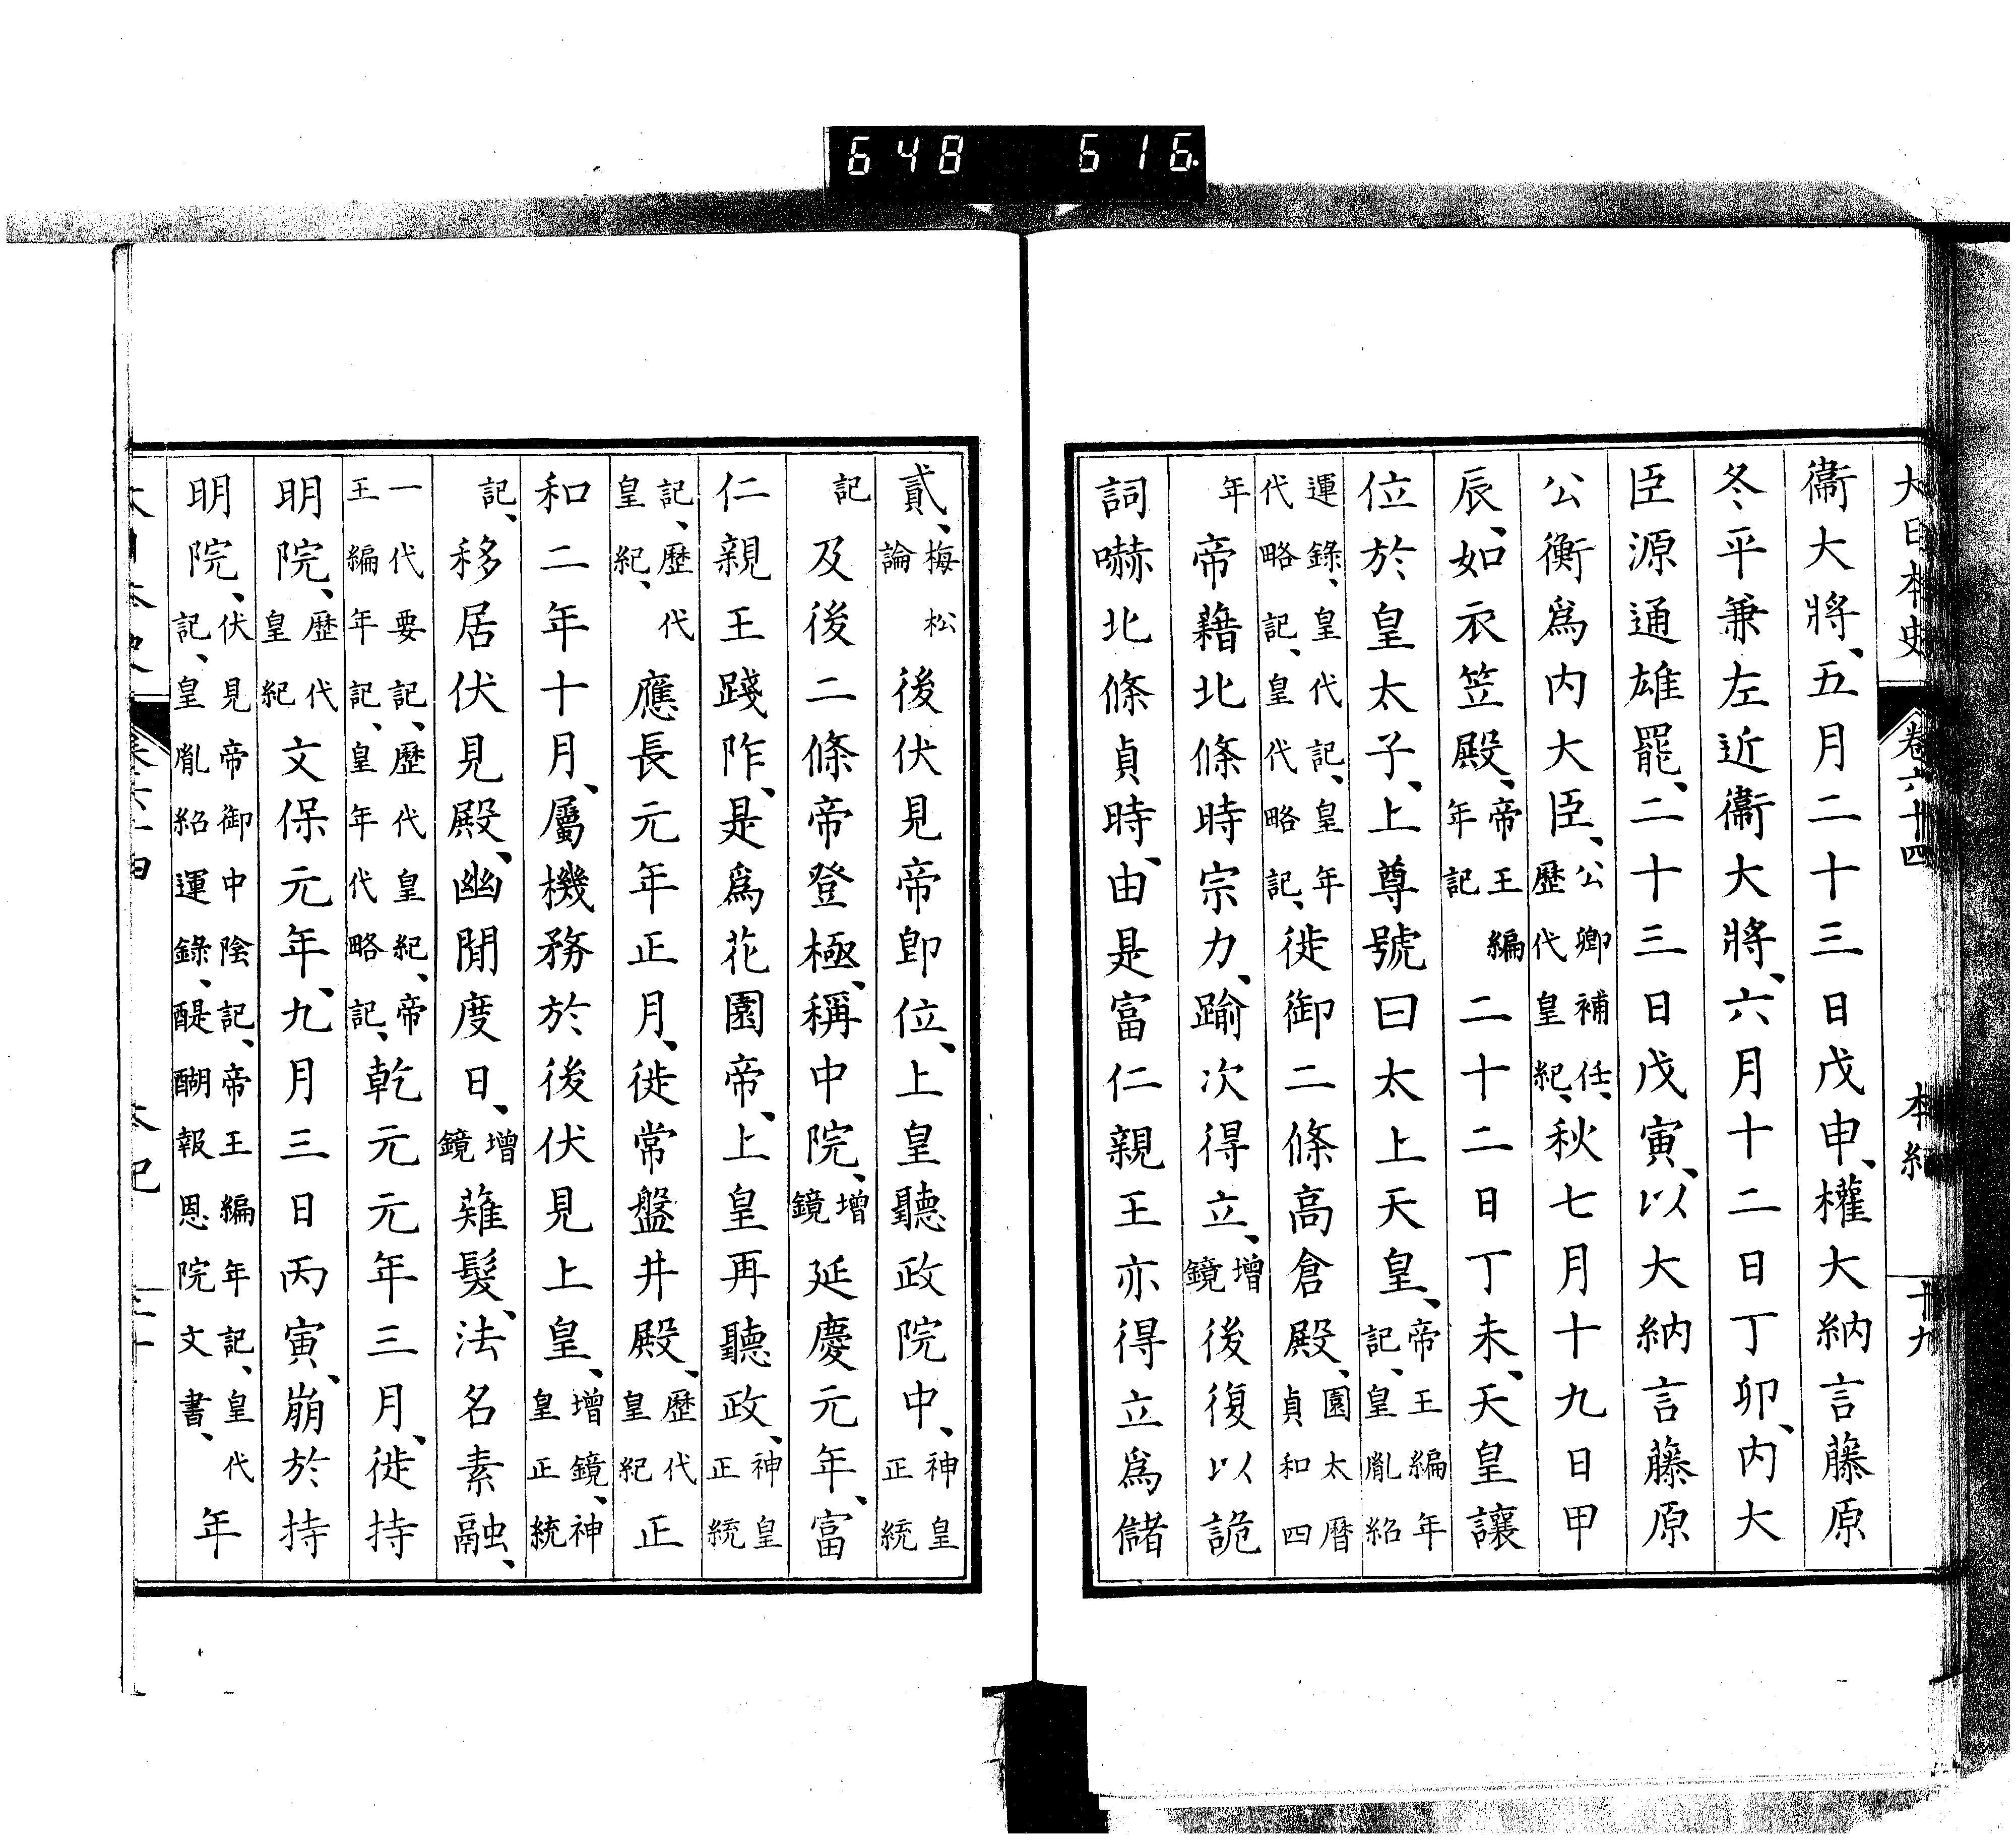 648 616
大日本史 卷六十四 本紀 十九
衞大將、五月二十三日戊申、權大納言藤原
冬平兼左近衞大將、六月十二日丁卯、內大
臣源通雄罷、二十三日戊寅、以大納言藤原
公衡爲內大臣、公卿補任、歷代皇紀、秋七月十九日甲
辰、如衣笠殿、帝王編年記二十二日丁未、天皇讓
位於皇太子、上尊號曰太上天皇、帝王編年記、皇胤紹
運錄、皇代記、皇年代略記、皇代略記、徙御二條高倉殿、園太曆貞和四
年帝藉北條時宗力、踰次得立、增鏡後復以詭
詞嚇北條貞時、由是富仁親王亦得立爲儲
貳、梅松論後伏見帝卽位、上皇聽政院中、神皇正統
記及後二條帝登極、稱中院、增鏡延慶元年、富
仁親王踐阼、是爲花園帝、上皇再聽政、神皇正統
記、歷代皇紀、應長元年正月、徙常盤井殿、歷代皇紀正
和二年十月、屬機務於後伏見上皇、增鏡、神皇正統
記、移居伏見殿、幽閒度日、增鏡薙髮、法名素融、
一代要記、歷代皇紀、帝王編年記、皇年代略記、乾元元年三月、徙持
明院、歷代皇紀文保元年、九月三日丙寅、崩於持
明院、伏見帝御中陰記、帝王編年記、皇代記、皇胤紹運錄、醍醐報恩院文書、年